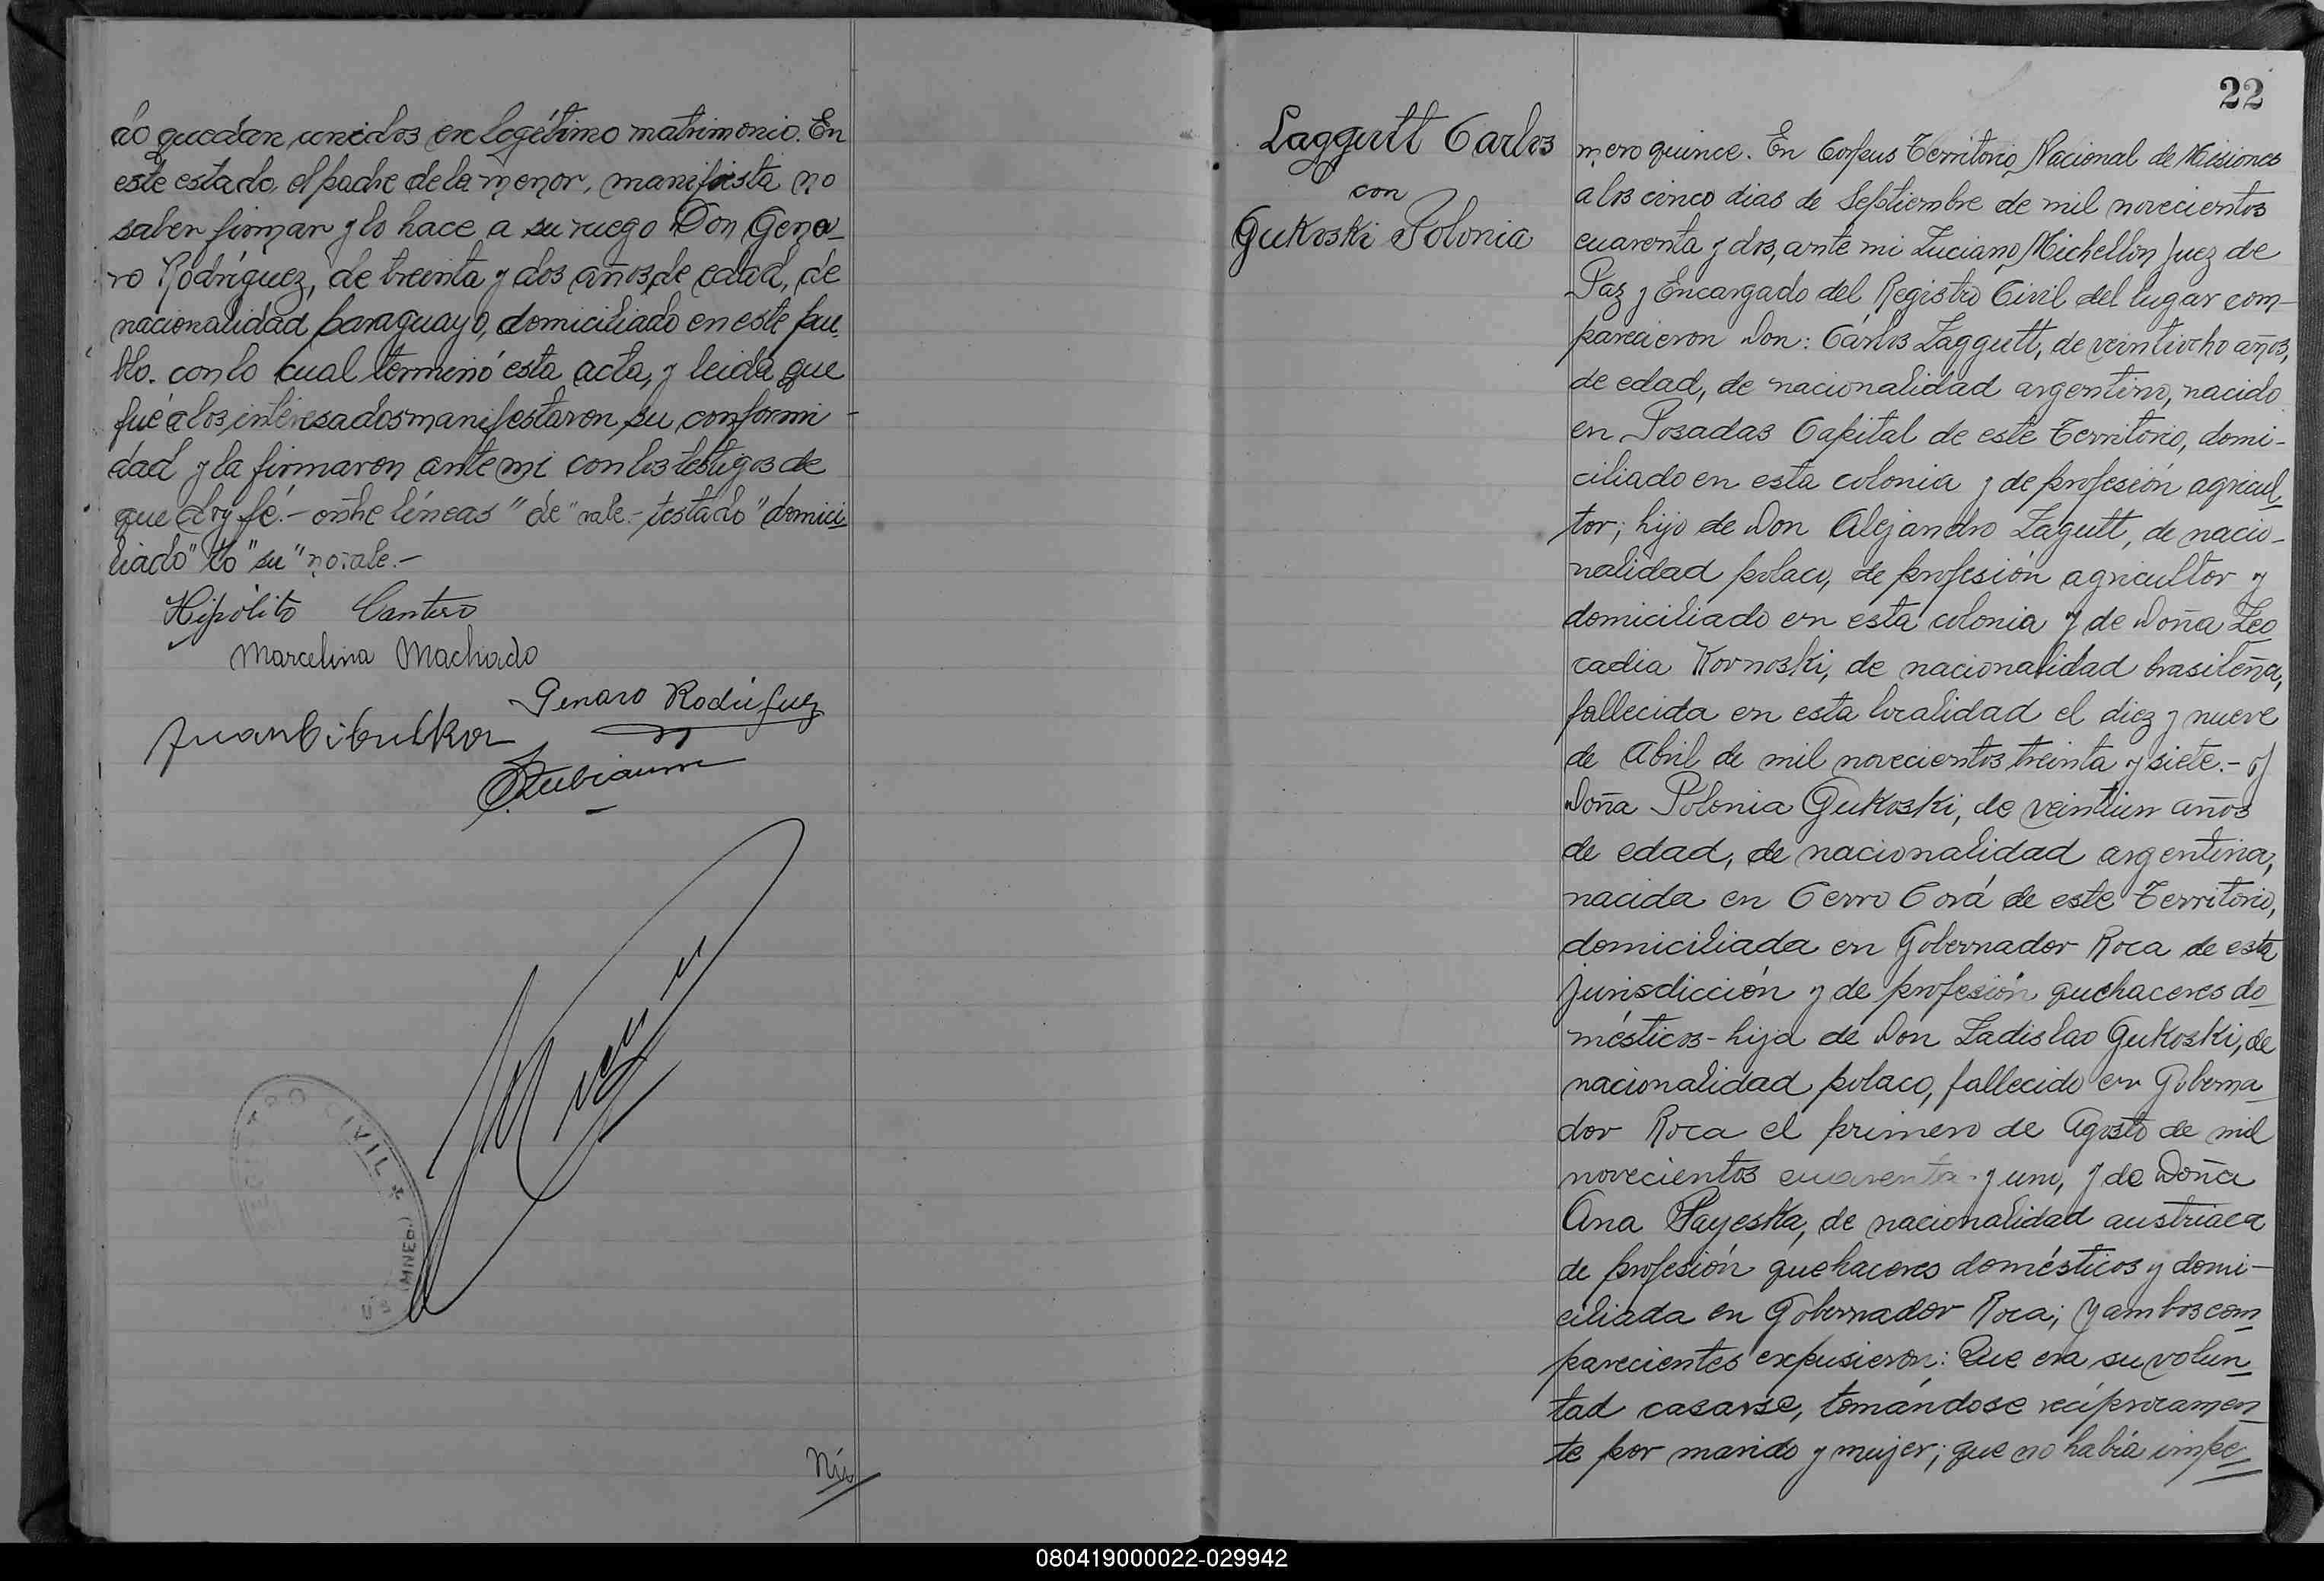 do quedan unidos en legítimo matrimonio. En
este estado, el padre de la menor, manifiesta no
saber firmar y lo hace a su ruego Don Gena-
ro Rodríguez, de treinta y dos años, de edad, de
nacionalidad paraguayo, domiciliado en este pue
blo. con lo cual terminó esta acta, y leida que
fué a los interesados manifestaron su conformi
dad y la firmaron ante mi con los testigos de
que doy fé.- entre líneas "de" vale.- testado "domici
liado" "to" "su" no vale.-
Hipólito Cantero
Marcelina Machado
Genaro Rodríguez
CIVIL
Nú
22
Laggutt Carlos
con
Gukoski Polonia
mero quince. En Corpus Territorio Nacional de Misiones
a los cinco dias de Septiembre de mil novecientos
cuarenta y dos, ante mi Luciano Michellon Juez de
Paz y Encargado del Registro Civil del lugar com-
parecieron Don: Cárlos Laggutt, de veintiocho años,
de edad, de nacionalidad argentino, nacido
en Posadas Capital de este Territorio, domi-
ciliado en esta colonia y de profesión agricul
tor; hijo de Don Alejandro Lagutt, de nacio-
nalidad polaco, de profesión agricultor y
domiciliado en esta colonia y de Doña Leo
cadia Kornoski, de nacionalidad brasileña,
fallecida en esta localidad el diez y nueve
de Abril de mil novecientos treinta y siete.- y
Doña Polonia Gukoski, de veintiun años
de edad, de nacionalidad argentina,
nacida en Cerro Corá de este Territorio,
domiciliada en Gobernador Roca de esta
jurisdicción y de profesión quehaceres do
mésticos- hija de Don Ladislao Gukoski, de
nacionalidad polaco, fallecido en Goberna
dor Roca el primero de Agosto de mil
novecientos cuarenta y uno, y de Doña
Ana Payeska, de nacionalidad austriaca
de profesión quehaceres domésticos y domi-
ciliada en Gobernador Roca; y ambos com
parecientes expusieron: Que era su volun
tad casarse, tomándose recíprocamen
te por marido y mujer; que no había impe
080419000022-029942